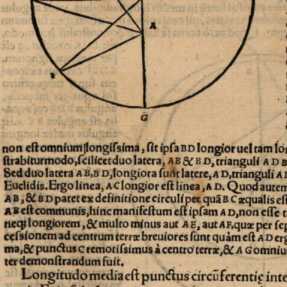 A
G
non est omnium longissima, sit ipsa BD longior uel tam lon
strabitur modo, scilicet duo latera, AB & BD, trianguli ADB
Sed duo latera AB, BD, longiora sunt latere, AD, trianguli AD
Euclidis. Ergo linea, AC longior est linea, AD. Quod autem
AB, & BD patet ex definitione circuli per quã BC æqualis est
AB est communis, hinc manifestum est ipsam AD, non esse t
neqꝫ longiorem, & multo minus aut AE, aut AF, quæ per se
cessionem ad centum terræ breuiores sunt quàm est AD erg
ma, & punctus C remotissimus à centro terræ, & AG omniu
ter demonstrandum fuit.
Longitudo media est punctus circũferentię inte